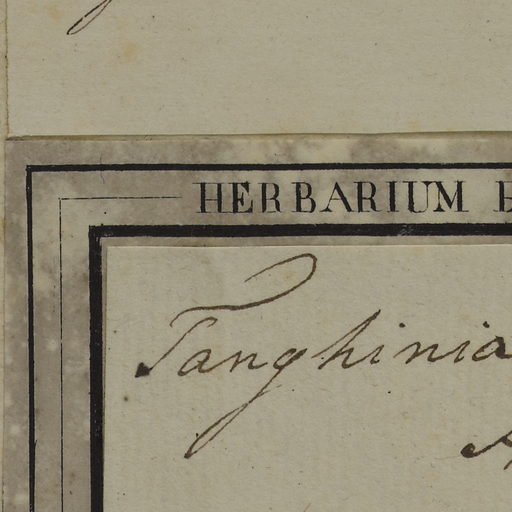 HERBARIUM
Tanghinia